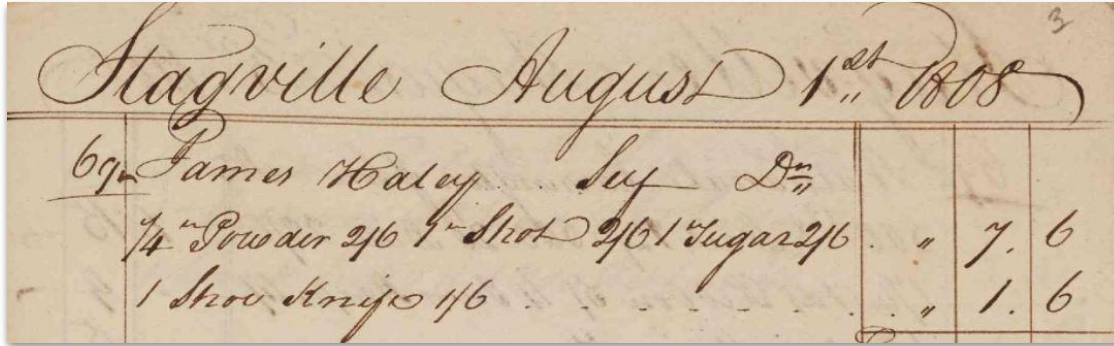 3
Stagville August 1st 1808
69 James Haley Self Dr
1/4 " Powder 2/6 1 " Shot 2/6 1 Sugar 2/6 . " 7. 6
1 Shoe Knife 1/6 " 1. 6